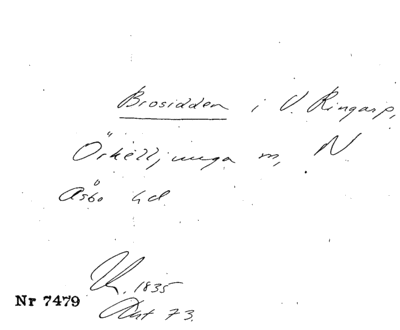 Brosidden i V. Ringarp,
Örkelljunga m, N
Åsbo hd
1835
Nr 7479
Aut 73.